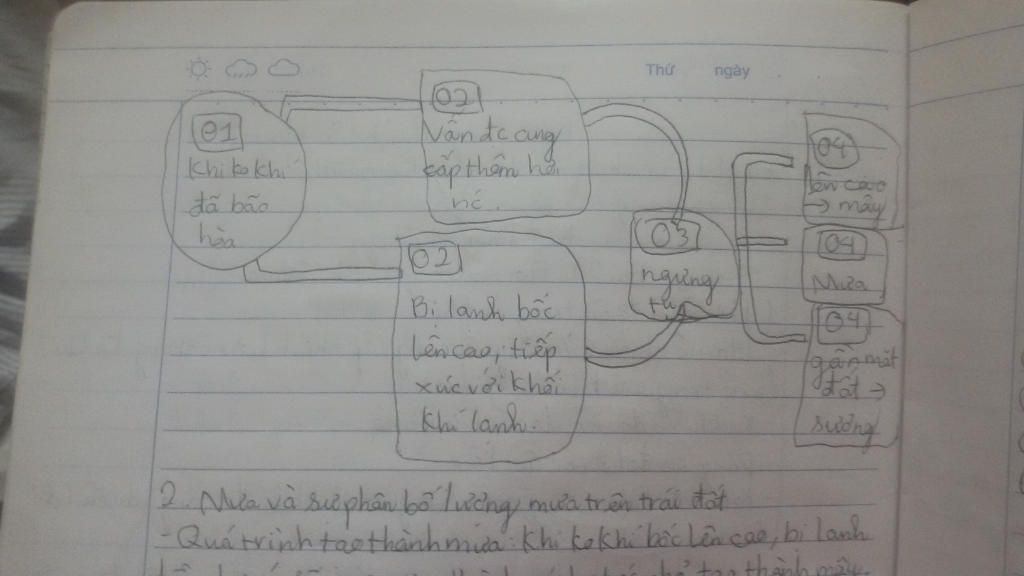 Thứ ngày
01
Khi ko khí
đã bão
hòa
02
Vẫn đc cung
cấp thêm hơi
nc.
02
Bị lanh bốc
lên cao, tiếp
xúc với khối
khí lanh.
03
ngưng
tụ
04
lên cao
→ mây
04
Mưa
04
gần mặt
đất →
sương
2. Mưa và sự phân bố lượng mưa trên trái đất
- Quá trình tạo thành mưa: Khi ko khí bốc lên cao, bị lanh
tạo thành mây.